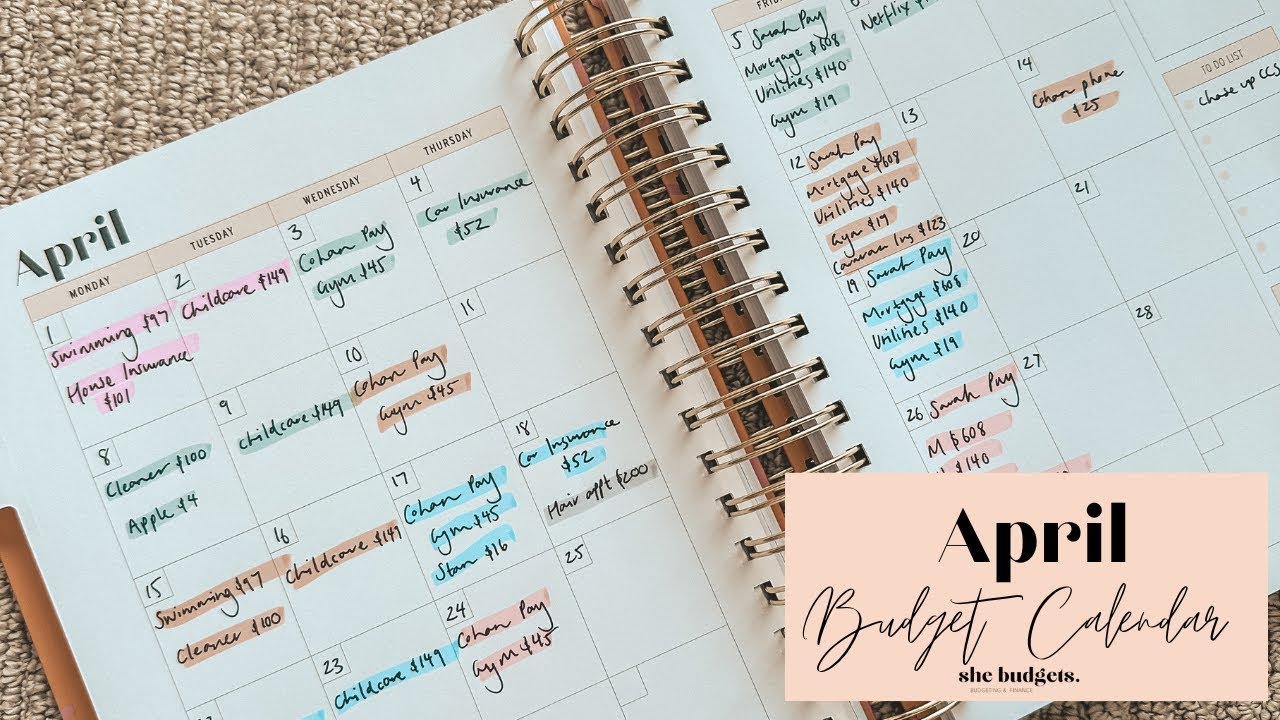 April
MONDAY
TUESDAY
WEDNESDAY
THURSDAY
1
Swimming $97
House Insurance
$101
2
Childcare $149
3
Cohan Pay
Gym $45
4
Car Insurance
$52
8
Cleaner $100
Apple $4
9
Childcare $149
10
Cohan Pay
Gym $45
11
15
Swimming $97
Cleaner $100
16
Childcare $149
17
Cohan Pay
Gym $45
Stan $16
18
Car Insurance
$52
Hair appt $200
23
Childcare $149
24
Cohan Pay
Gym $45
25
5 Sarah Pay
Mortgage $608
Utilities $140
Gym $19
Netflix
12 Sarah Pay
Mortgage $608
Utilities $140
Gym $19
Caravan Ins $123
13
14
Cohan phone
$25
19 Sarah Pay
Mortgage $608
Utilities $140
Gym $19
20
21
26 Sarah Pay
M $608
$140
27
28
TO DO LIST
chase up CCS
April
Budget Calendar
she budgets.
BUDGETING & FINANCE